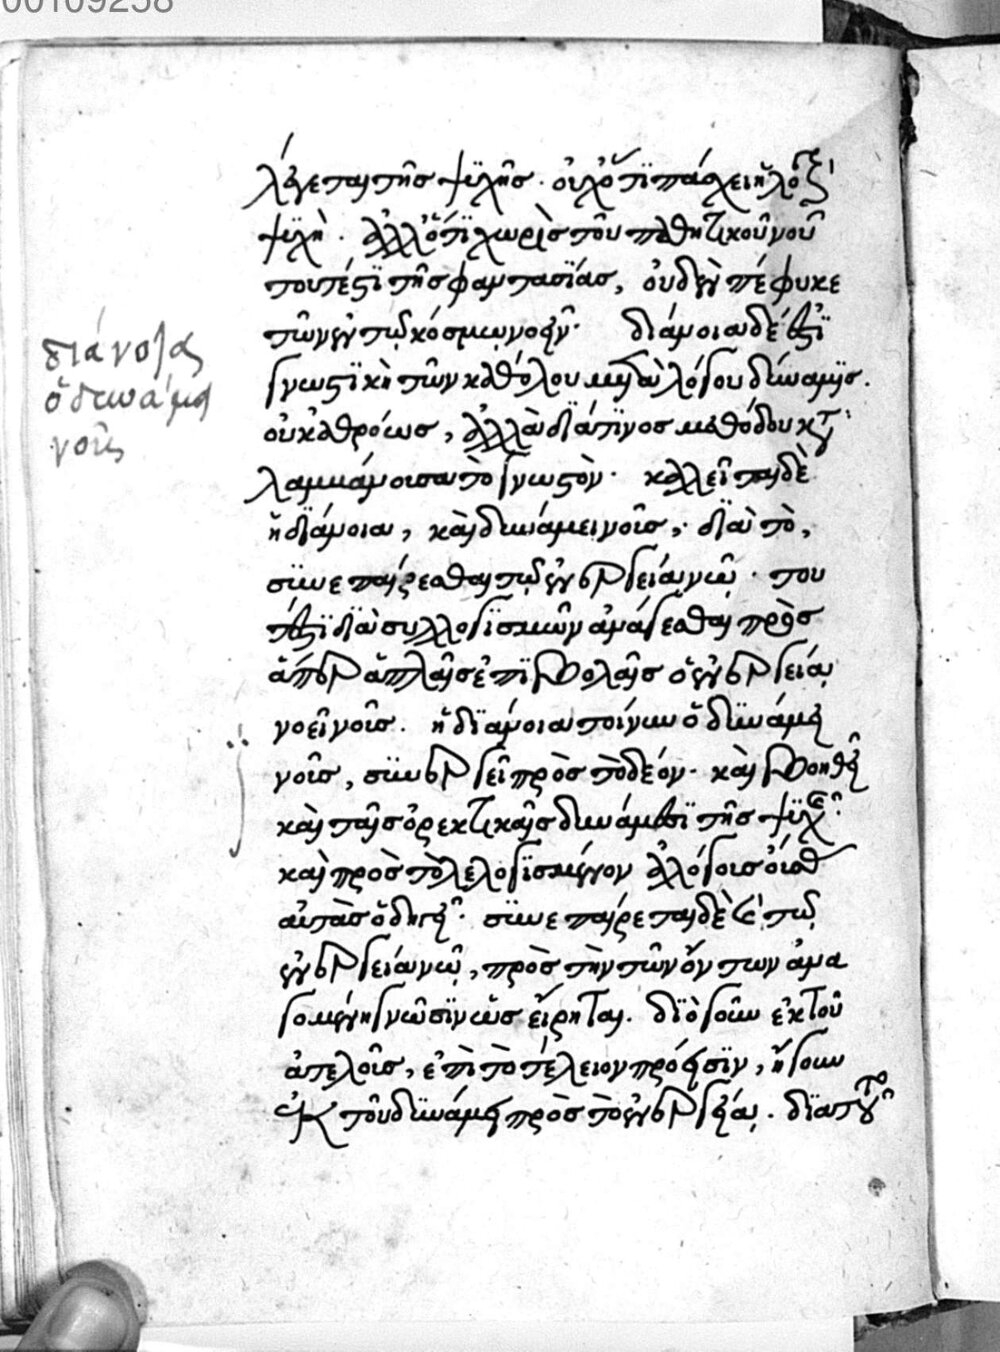 00109258
λέγεται τῆς ψυχῆς. οὐχ ὅτι πάσχει ἡ λογι
ψυχὴ. ἀλλ' ὅτι χωρὶς τοῦ παθητικοῦ νοῦ
τουτέστι τῆς φαντασίας, οὐδὲν πέφυκε
τῶν ἐν τῷ κόσμῳ νοεῖν. διάνοια δέ ἐστι
γνωστικὴ τῶν καθόλου μετὰ λόγου δύναμις.
οὐκ ἀθρόως, ἀλλὰ διά τινος μεθόδου κατα
λαμβάνουσα τὸ γνωστόν. καλεῖται δὲ
ἡ διάνοια, καὶ δυνάμει νοῦς, διὰ τὸ,
συνεπαίρεσθαι τῷ ἐνεργείᾳ νῷ. του
τέστι διὰ συλλογισμῶν ἀνάγεσθαι πρὸς
ἅπερ ἁπλαῖς ἐπιβολαῖς ὁ ἐνεργείᾳ
νοεῖ νοῦς. ἡ διάνοια τοίνυν ὁ δυνάμει
νοῦς, συνεργεῖ πρὸς τὸ δέον. καὶ βοηθεῖ
καὶ ταῖς ὀρεκτικαῖς δυνάμεσι τῆς ψυχῆς
καὶ πρὸς τὸ λελογισμένον ἀλόγοις οὔσαις
αὐτὰς ὁδηγεῖ. συνεπαίρεται δὲ τῷ
ἐνεργείᾳ νῷ, πρὸς τὴν τῶν ὄντων ἀνα
γομένη γνῶσιν ὡς εἴρηται. διὸ γοῦν ἐκ τοῦ
ἀτελοῦς, ἐπὶ τὸ τέλειον πρόεισιν, ἤγουν
ἐκ τοῦ δυνάμει πρὸς τὸ ἐνεργείᾳ. διὰ τοῦτο
διάνοια
ὁ δυνάμει
νοῦς